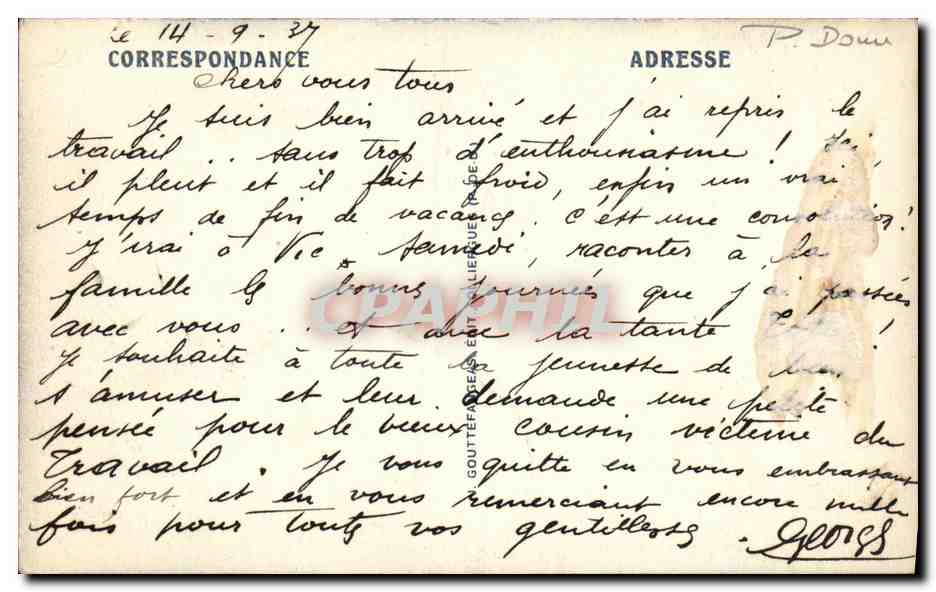 le 14 - 9 - 37
P. Dome
CORRESPONDANCE
ADRESSE
Chers vous tous
Je suis bien arrivé et j'ai repris le
travail .. sans trop d'enthousiasme ! Ici,
il pleut et il fait froid, enfin un vrai
temps de fin de vacances. c'est une consolation!
J'irai à Vic samedi, raconter à la
famille les bonnes journées que j'ai passées
avec vous .. et avec la tante !
Je souhaite à toute la jeunesse de bien
s'amuser et leur demande une petite
pensée pour le vieux cousin victime du
Travail. Je vous quitte en vous embrassant
bien fort et en vous remerciant encore mille
fois pour toutes vos gentillesses.
Georges
GOUTTEFANGEAS, EDIT. LIERGUE (P.-DE-D.)
CPAPHIL